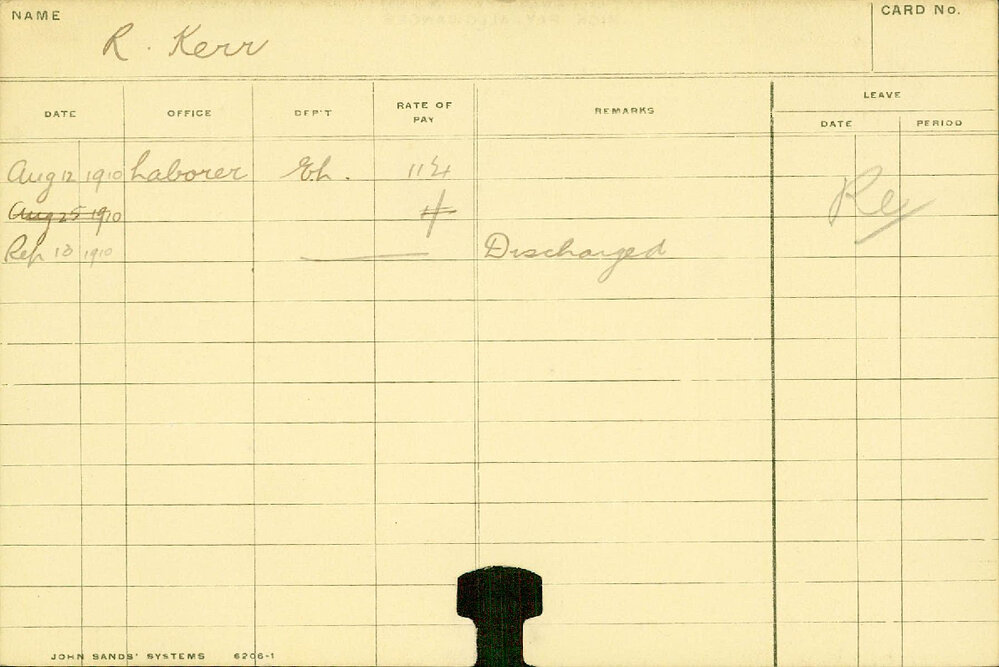 NAME
R. Kerr
CARD No.
DATE OFFICE DEP'T RATE OF PAY REMARKS LEAVE
DATE PERIOD
Aug 12 1910 Laborer Eh. 11/4
Aug 25 1910
Sep 13 1910 Discharged
Re
JOHN SANDS' SYSTEMS 6206-1